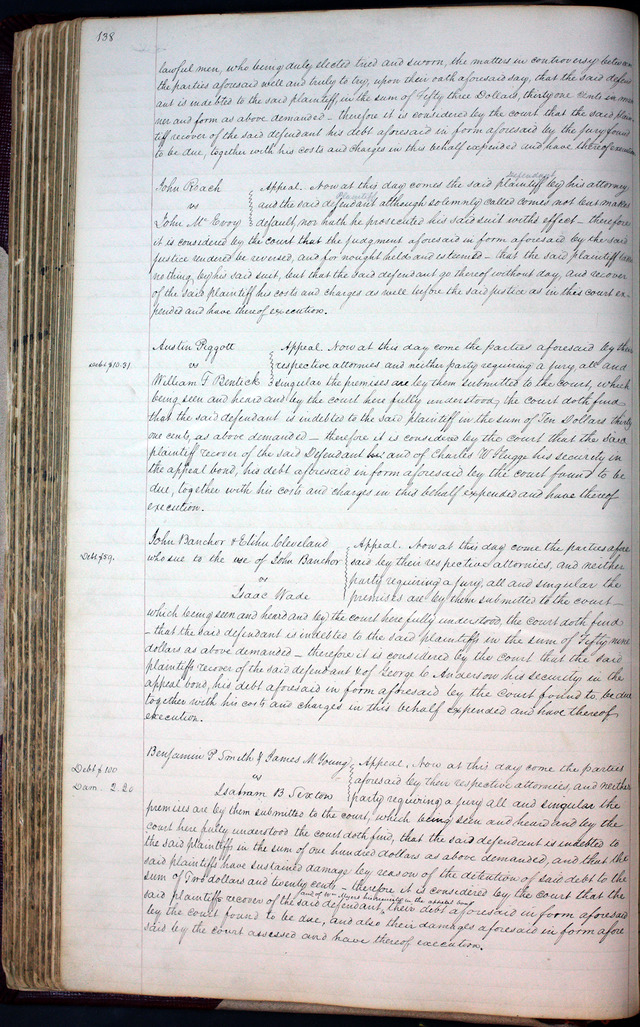 138
lawful men, who being duly elected tried and sworn, the matters in controversy between
the parties aforesaid well and truly to try, upon their oath aforesaid say, that the said defend
ant is indebted to the said plaintiff in the sum of Fifty three Dollars, thirty one cents in man
ner and form as above demanded – therefore it is considered by the court that the said plain
tiff recover of the said defendant his debt aforesaid in form aforesaid by the jury found
to be due, together with his costs and charges in this behalf expended and have thereof execution
defendant
John Roach
Appeal. Now at this day comes the said plaintiff by his attorney
plaintiff
vs
and the said defendant although solemnly called comes not but makes
John Mc Evoy
default, nor hath he prosecuted his said suit with effect – therefore
it is considered by the court that the judgment aforesaid in form aforesaid by the said
justice rendered be reversed, and for nought held and esteemed – that the said plaintiff take
nothing by his said suit, but that the said defendant go thereof without day, and recover
of the said plaintiff his costs and charges as well before the said justice as in this court ex-
pended and have thereof execution.
Austin Piggott
Appeal. Now at this day come the parties aforesaid by their
Debt $10.31
vs
respective attornies and neither party requiring a jury, all and
William T Bentick
singular the premises are by them submitted to the court, which
being seen and heard and by the court here fully understood, the court doth find
that the said defendant is indebted to the said plaintiff in the sum of Ten Dollars thirty
one cents, as above demanded – therefore it is considered by the court that the said
plaintiff recover of the said Defendant and of Charles W his security in
the appeal bond, his debt aforesaid in form aforesaid by the court found to be
due, together with his costs and charges in this behalf expended and have thereof
execution.
John Banchor & Elihu Cleveland
Appeal. Now at this day come the parties afore
Debt $59.
who sue to the use of John Banchor
said by their respective attornies, and neither
vs
party requiring a jury, all and singular the
Isaac Wade
premises are by them submitted to the court –
which being seen and heard and by the court here fully understood, the court doth find
– that the said defendant is indebted to the said plaintiffs in the sum of Fifty nine
dollars as above demanded – therefore it is considered by the court that the said
plaintiffs recover of the said defendant & of George C. Anderson his security in the
appeal bond, his debt aforesaid in form aforesaid by the court found to be due
together with his costs and charges in this behalf expended and have thereof
execution.
Benjamin P Smith & James M Young
Appeal. Now at this day come the parties
Debt $100
vs
aforesaid by their respective attornies, and neither
Dam 2.20
B Sexton
party requiring a jury all and singular the
premises are by them submitted to the court, which being seen and heard and by the
court here fully understood the court doth find, that the said defendant is indebted to
the said plaintiffs in the sum of one hundred dollars as above demanded, and that the
said plaintiffs have sustained damage by reason of the detention of said debt to the
sum of Two dollars and twenty cents – therefore it is considered by the court that the
and of Wm his security in the appeal bond
said plaintiffs recover of the said defendant, their debt aforesaid in form aforesaid
by the court found to be due, and also their damages aforesaid in form afore
said by the court assessed and have thereof execution.